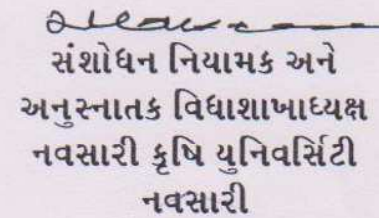 સંશોધન નિયામક અને
અનુસ્નાતક વિધાશાખાધ્યક્ષ
નવસારી કૃષિ યુનિવર્સિટી
નવસારી